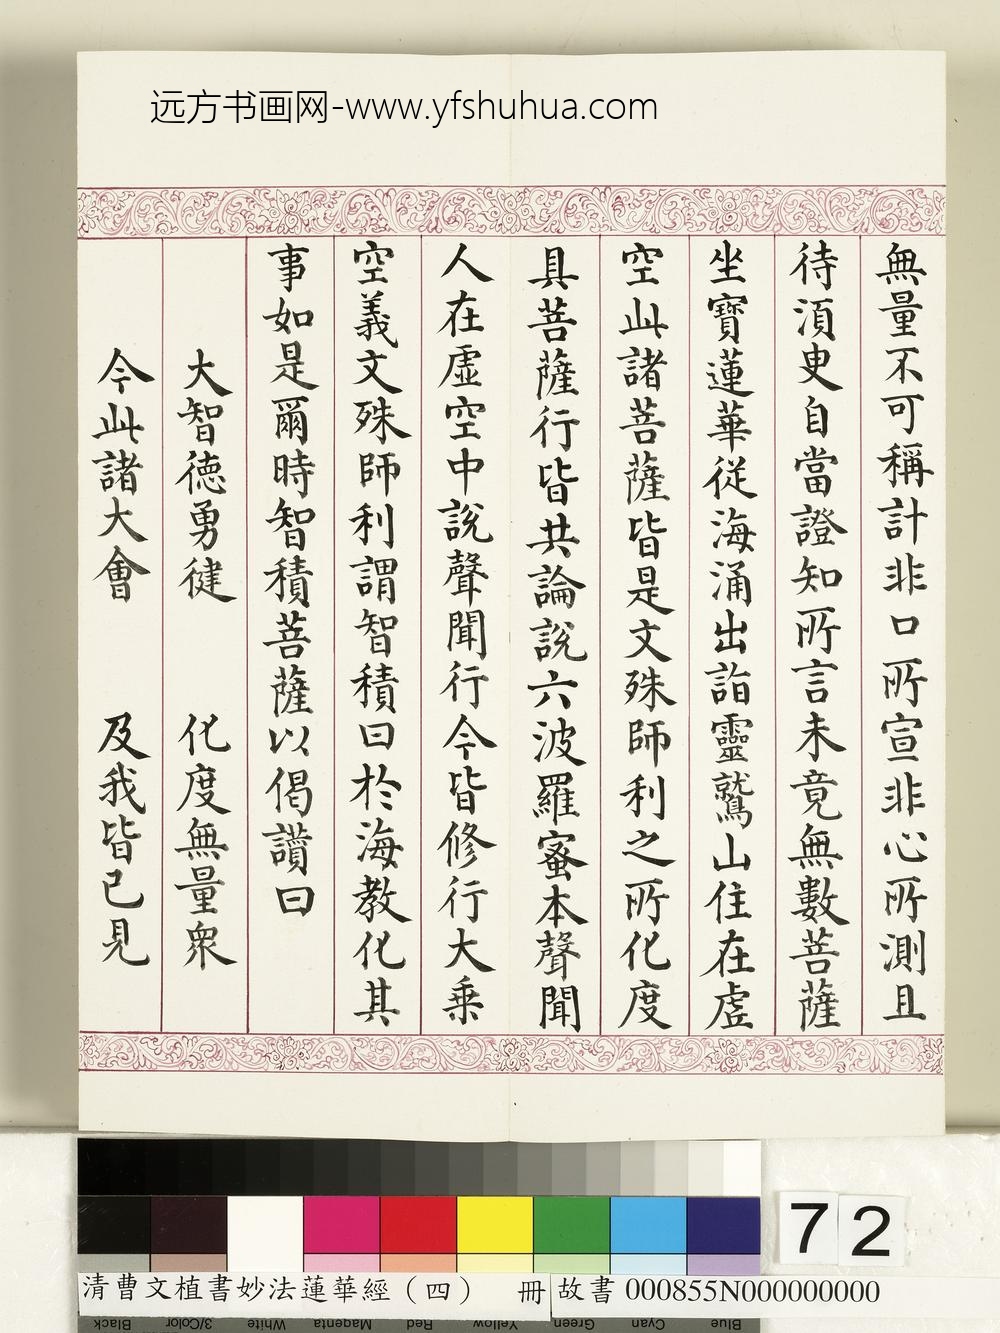 远方书画网-www.yfshuhua.com
無量不可稱計非口所宣非心所測且
待湏臾自當證知所言未竟無數菩薩
坐寶蓮華從海涌出詣靈鷲山住在虛
空此諸菩薩皆是文殊師利之所化度
具菩薩行皆共論說六波羅蜜本聲聞
人在虛空中說聲聞行今皆修行大乘
空義文殊師利謂智積曰於海教化其
事如是爾時智積菩薩以偈讚曰
大智德勇健 化度無量眾
今此諸大會 及我皆已見
72
清曹文植書妙法蓮華經（四） 冊
故書 000855N000000000
Black 3/Color White Magenta Red Yellow Green Cyan Blue